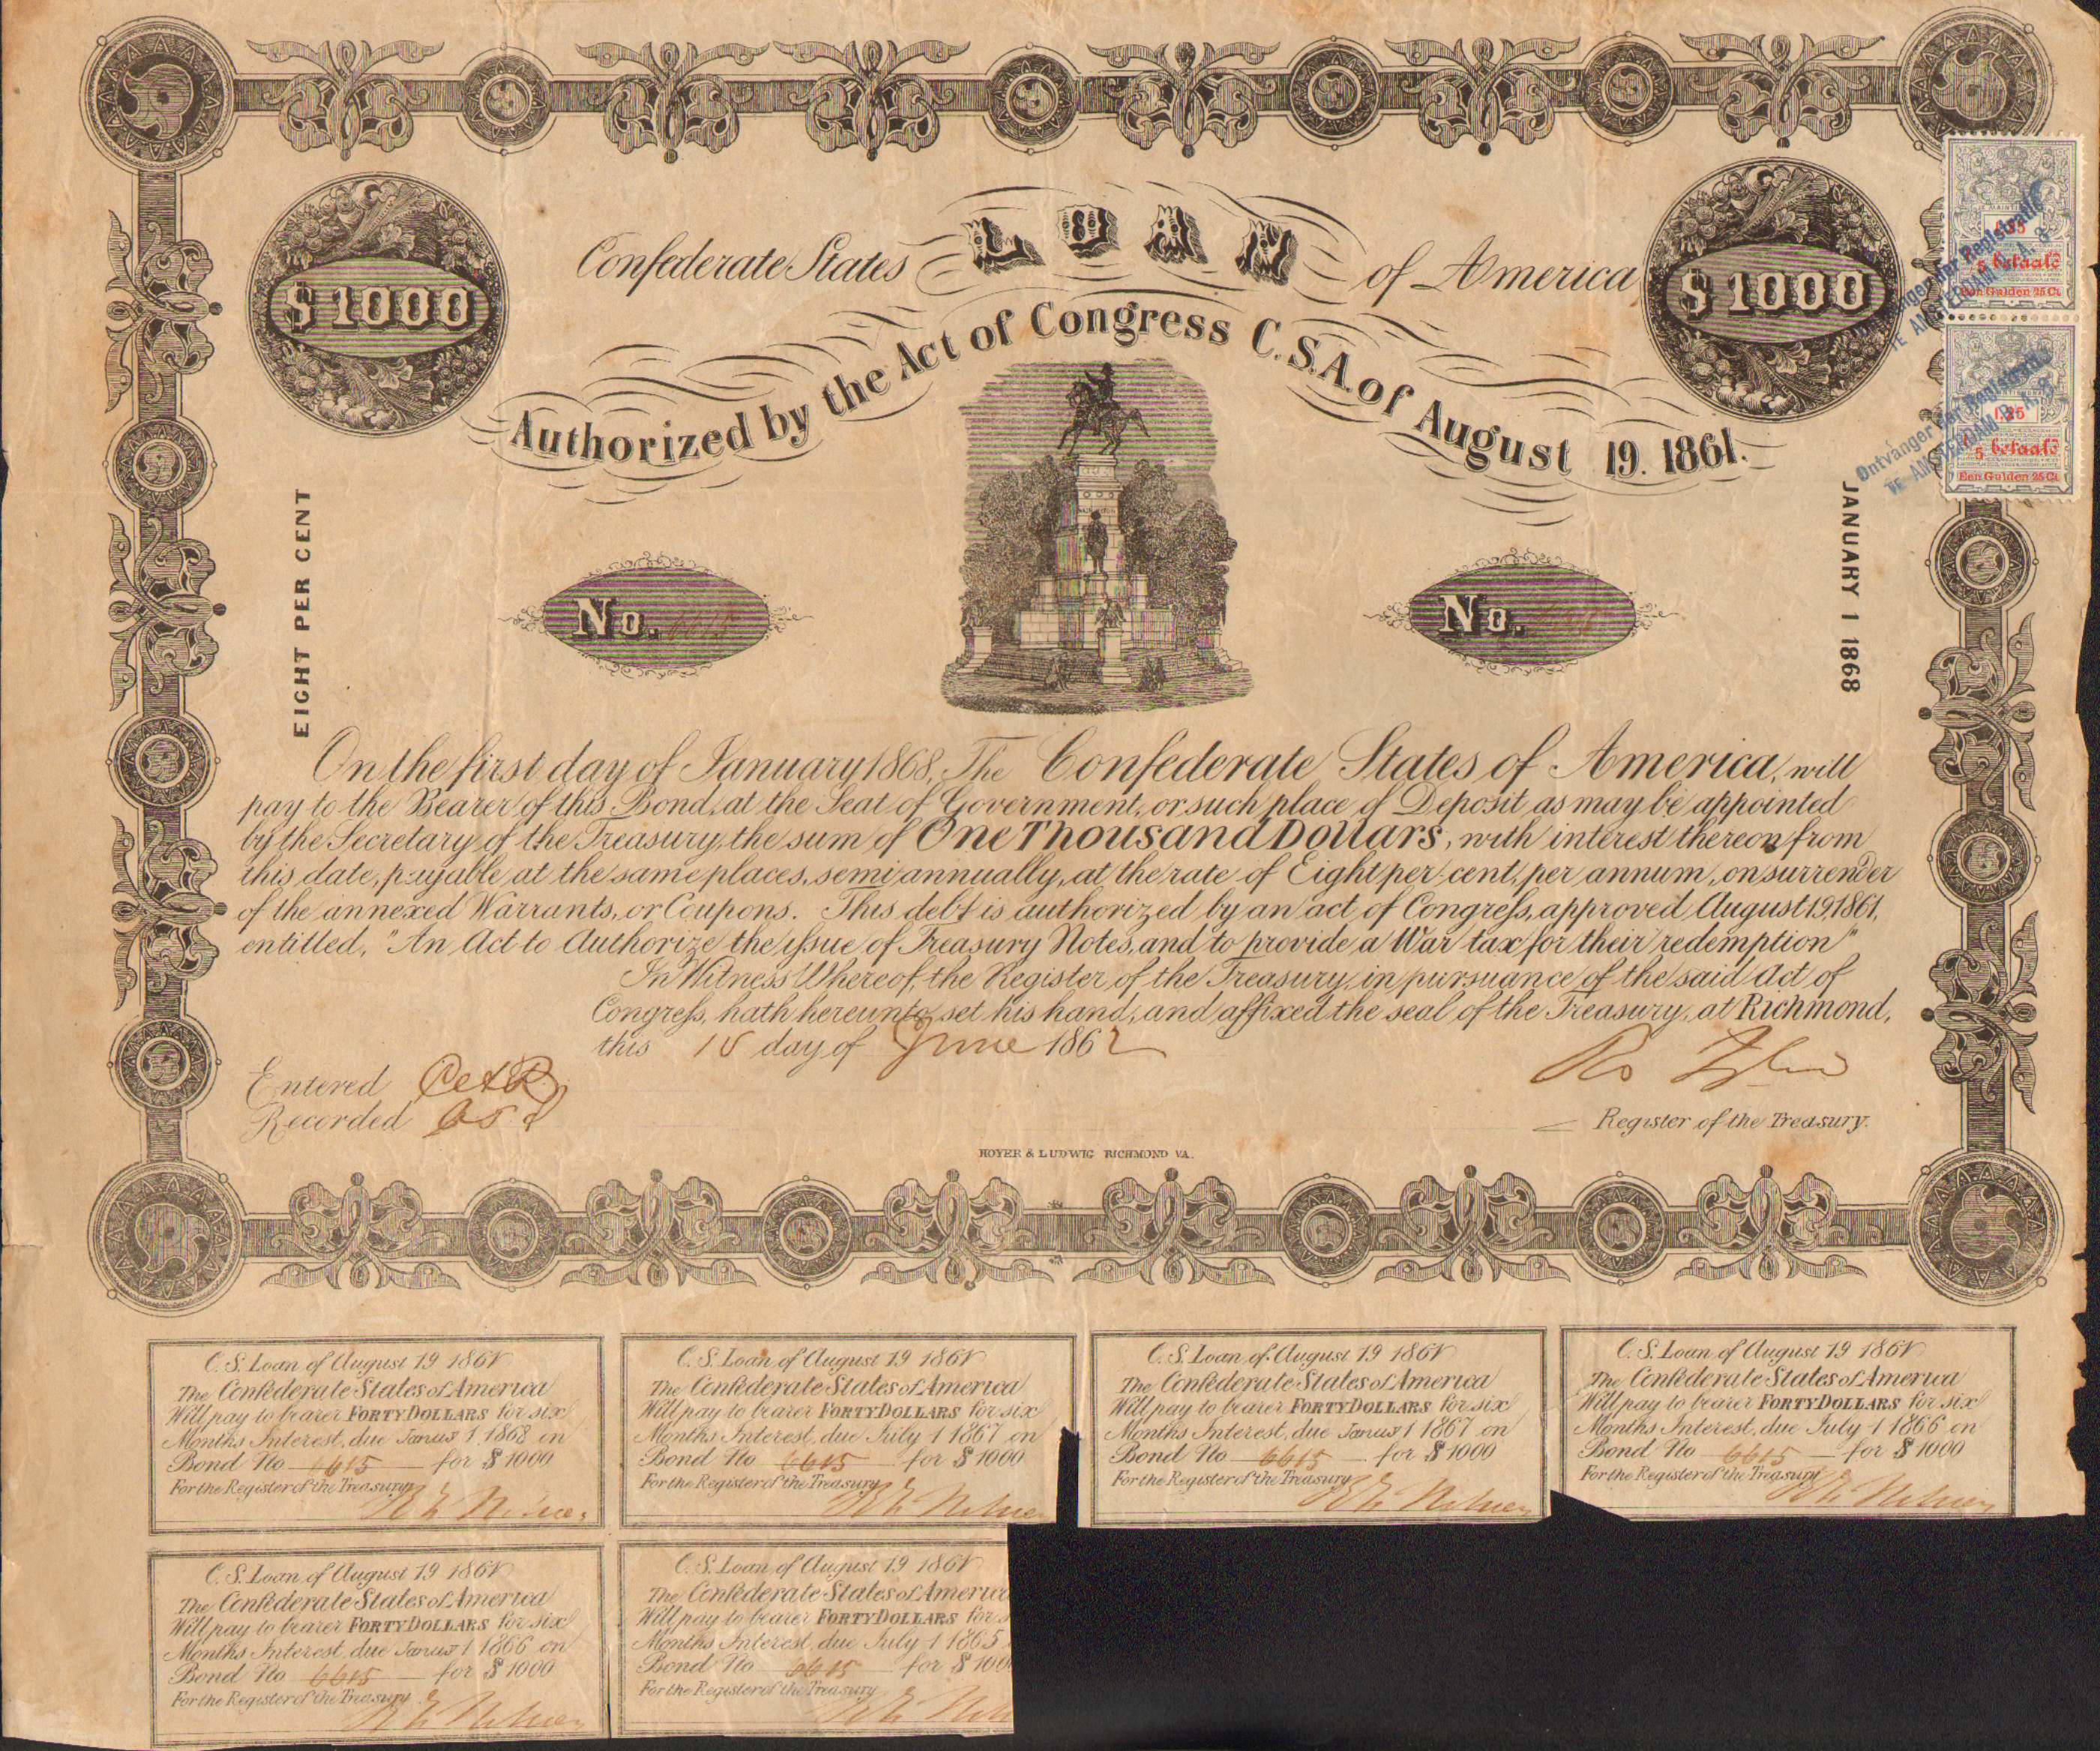 Confederate States LOAN of America
$1000
$1000
Authorized by the Act of Congress C.S.A. of August 19. 1861.
1,25
5 betaald
Een Gulden 25 Ct
Ontvanger der Registratie
TE AMSTERDAM
1,25
5 betaald
Een Gulden 25 Ct
Ontvanger der Registratie
TE AMSTERDAM
EIGHT PER CENT
JANUARY 1 1868
No. 6615
No.
On the first day of January 1868, The Confederate States of America, will
pay to the Bearer of this Bond, at the Seat of Government, or such place of Deposit as may be appointed
by the Secretary of the Treasury, the sum of One Thousand Dollars, with interest thereon from
this date, payable at the same places, semi annually, at the rate of Eight per cent, per annum, on surrender
of the annexed Warrants, or Coupons. This debt is authorized by an act of Congress, approved August 19, 1861,
entitled, "An Act to Authorize the issue of Treasury Notes, and to provide a War tax for their redemption"
In Witness Whereof, the Register of the Treasury, in pursuance of the said Act of
Congress, hath hereunto set his hand, and affixed the seal of the Treasury, at Richmond,
this 18 day of June 1862
Entered
Recorded
Ro Tyler
Register of the Treasury.
HOYER & LUDWIG RICHMOND VA.
C. S. Loan of August 19 1861
The Confederate States of America
Will pay to bearer FORTY DOLLARS for six
Months Interest, due Janury 1 1868 on
Bond No 6615 for $1000
For the Register of the Treasury
C. S. Loan of August 19 1861
The Confederate States of America
Will pay to bearer FORTY DOLLARS for six
Months Interest, due July 1 1867 on
Bond No 6615 for $1000
For the Register of the Treasury
C. S. Loan of August 19 1861
The Confederate States of America
Will pay to bearer FORTY DOLLARS for six
Months Interest, due Janury 1 1867 on
Bond No 6615 for $1000
For the Register of the Treasury
C. S. Loan of August 19 1861
The Confederate States of America
Will pay to bearer FORTY DOLLARS for six
Months Interest, due July 1 1866 on
Bond No 6615 for $1000
For the Register of the Treasury
C. S. Loan of August 19 1861
The Confederate States of America
Will pay to bearer FORTY DOLLARS for six
Months Interest, due Janury 1 1866 on
Bond No 6615 for $1000
For the Register of the Treasury
C. S. Loan of August 19 1861
The Confederate States of America
Will pay to bearer FORTY DOLLARS for s
Months Interest, due July 1 1865
Bond No 6615 for $100
For the Register of the Treasury